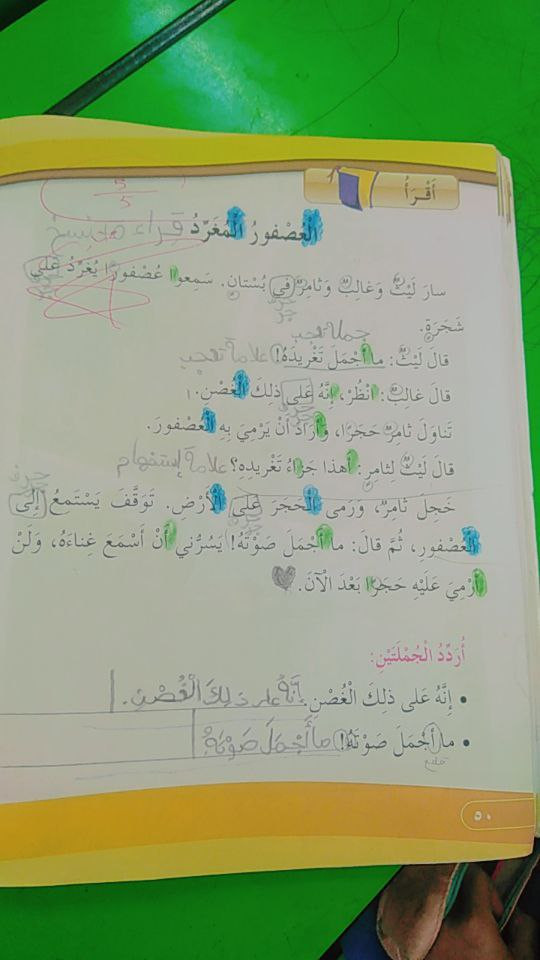 أَقْرَأُ
٥
٥
الْعُصْفورُ الْمُغَرِّدُ قراءة
سارَ لَيْثٌ وَغالِبٌ وَثامِرٌ في بُسْتانٍ. سَمِعوا عُصْفورًا يُغَرِّدُ عَلى
حرف جر
شَجَرَةٍ.
جملة تعجب
قالَ لَيْثٌ: ما أَجْمَلَ تَغْريدَهُ! علامة تعجب
قالَ غالِبٌ: انْظُرْ، إِنَّهُ عَلى ذلِكَ الْغُصْنِ.
تَناوَلَ ثامِرٌ حَجَرًا، وَأَرادَ أَنْ يَرْمِيَ بِهِ الْعُصْفورَ.
قالَ لَيْثٌ لِثامِرٍ: أَهذا جَزاءُ تَغْريدِهِ؟ علامة إستفهام
خَجِلَ ثامِرٌ، وَرَمى الْحَجَرَ عَلى الْأَرْضِ. تَوَقَّفَ يَسْتَمِعُ إِلى
الْعُصْفورِ، ثُمَّ قالَ: ما أَجْمَلَ صَوْتَهُ! يَسُرُّني أَنْ أَسْمَعَ غِناءَهُ، وَلَنْ
أَرْمِيَ عَلَيْهِ حَجَرًا بَعْدَ الْآنَ.
أُرَدِّدُ الْجُمْلَتَيْنِ:
• إِنَّهُ عَلى ذلِكَ الْغُصْنِ. إنَّهُ على ذلِكَ الْغُصْنِ.
• ما أَجْمَلَ صَوْتَهُ! ما أَجْمَلَ صَوْتَهُ!
٥٠